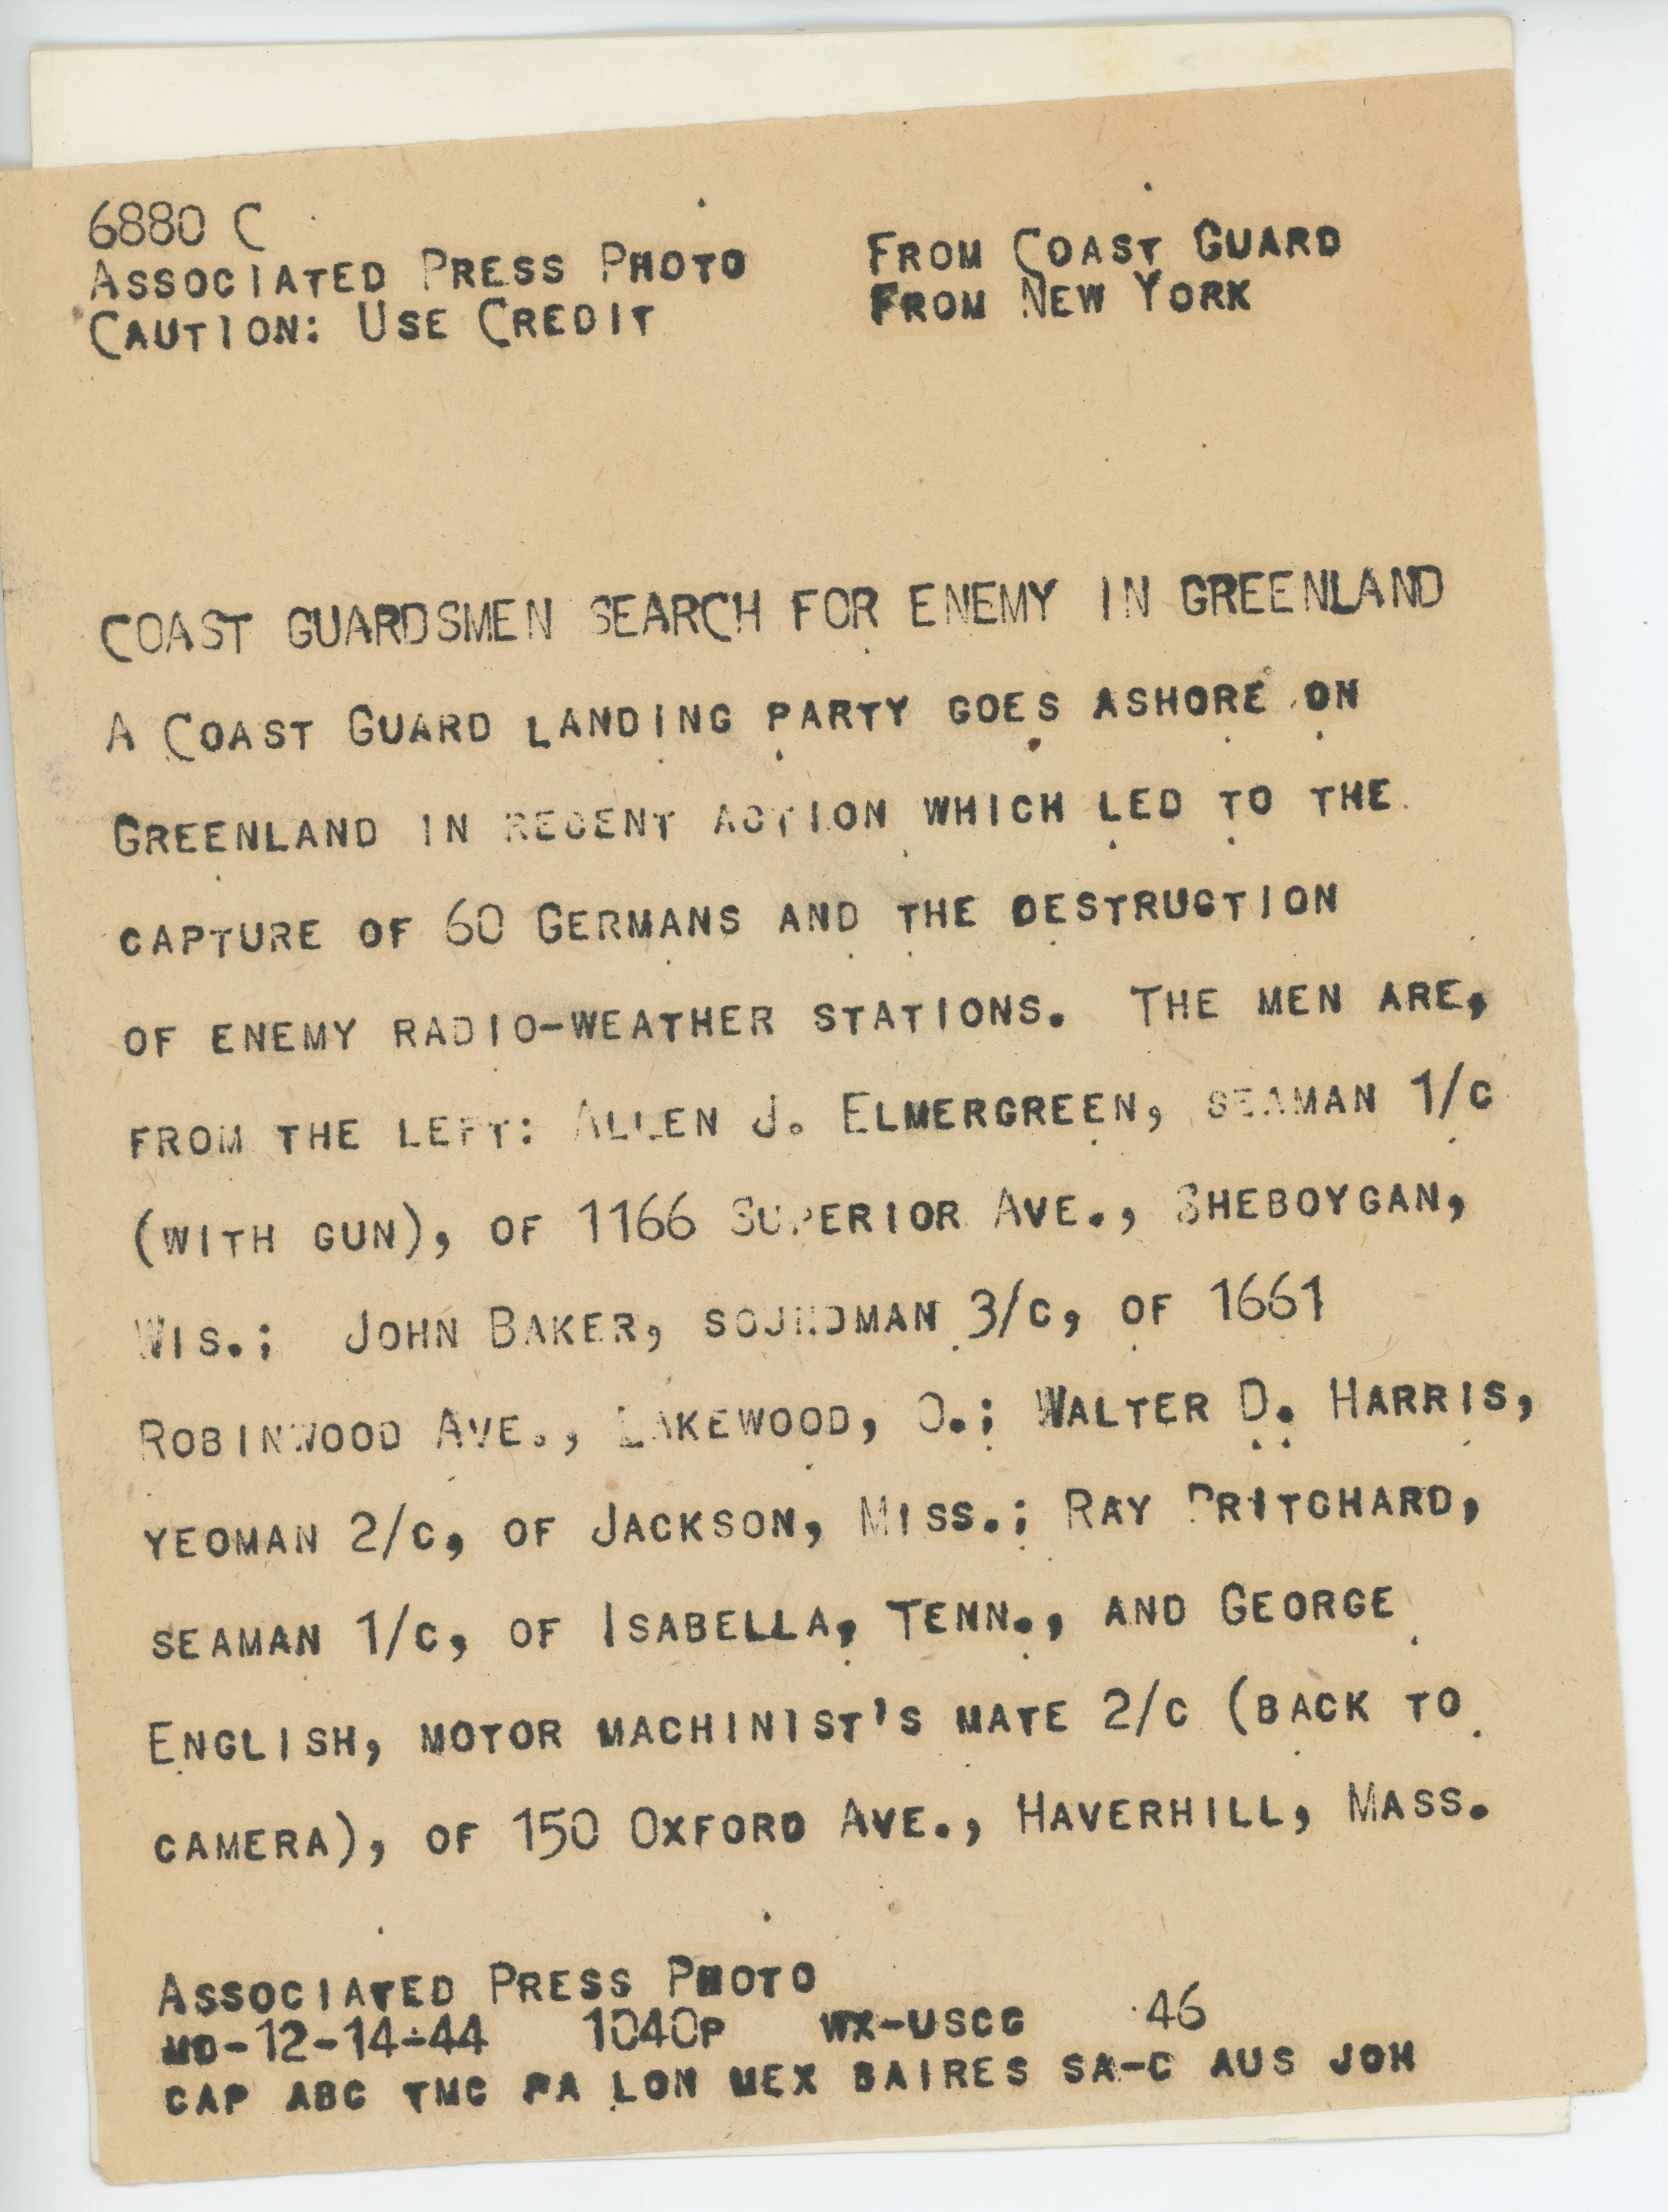 6880 C
ASSOCIATED PRESS PHOTO FROM COAST GUARD
CAUTION: USE CREDIT FROM NEW YORK
COAST GUARDSMEN SEARCH FOR ENEMY IN GREENLAND
A COAST GUARD LANDING PARTY GOES ASHORE ON
GREENLAND IN RECENT ACTION WHICH LED TO THE
CAPTURE OF 60 GERMANS AND THE DESTRUCTION
OF ENEMY RADIO-WEATHER STATIONS. THE MEN ARE,
FROM THE LEFT: ALLEN J. ELMERGREEN, SEAMAN 1/C
(WITH GUN), OF 1166 SUPERIOR AVE., SHEBOYGAN,
WIS.; JOHN BAKER, SOUNDMAN 3/C, OF 1661
ROBINWOOD AVE., LAKEWOOD, O.; WALTER D. HARRIS,
YEOMAN 2/C, OF JACKSON, MISS.; RAY PRITCHARD,
SEAMAN 1/C, OF ISABELLA, TENN., AND GEORGE
ENGLISH, MOTOR MACHINIST'S MATE 2/C (BACK TO
CAMERA), OF 150 OXFORD AVE., HAVERHILL, MASS.
ASSOCIATED PRESS PHOTO
MD-12-14-44 1040P WX-USCG 46
CAP ABC TMC PA LON MEX BAIRES SA-C AUS JOH